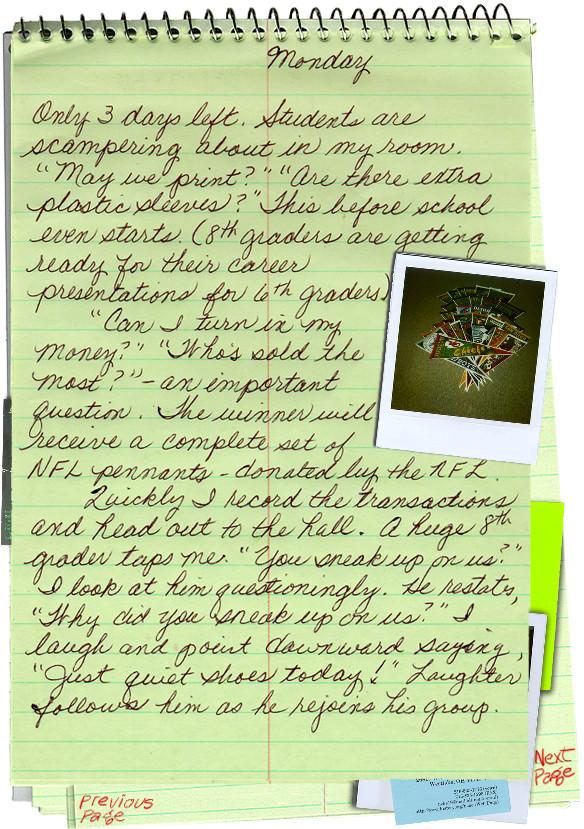 Monday
Only 3 days left. Students are
scampering about in my room.
"May we print?" "Are there extra
plastic sleeves?" This before school
even starts. (8th graders are getting
ready for their career
presentations for 6th graders)
"Can I turn in my
money?" "Who's sold the
most?" - an important
question. The winner will
receive a complete set of
NFL pennants - donated by the NFL.
Quickly I record the transactions
and head out to the hall. A huge 8th
grader taps me. "You sneak up on us?"
I look at him questioningly. He restates,
"Why did you sneak up on us?" I
laugh and point downward saying,
"Just quiet shoes today!" Laughter
follows him as he rejoins his group.
Chiefs
Next
Page
Previous
Page